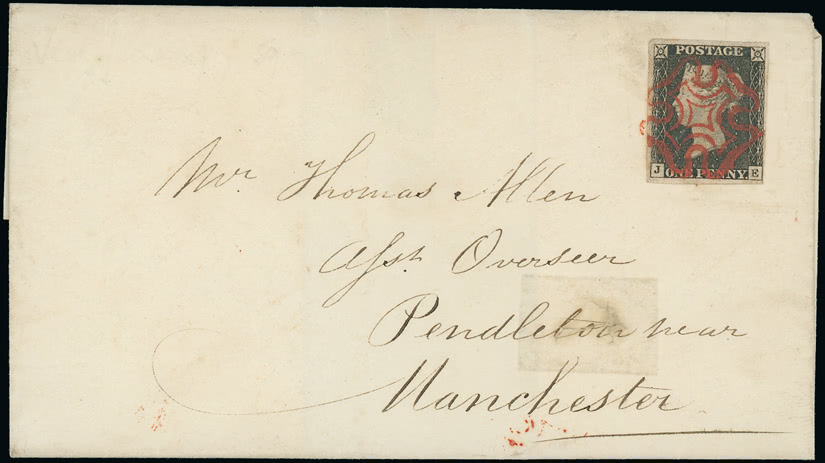 POSTAGE
J ONE PENNY E
Mr Thomas Allen
Asst Overseer
Pendleton near
Manchester